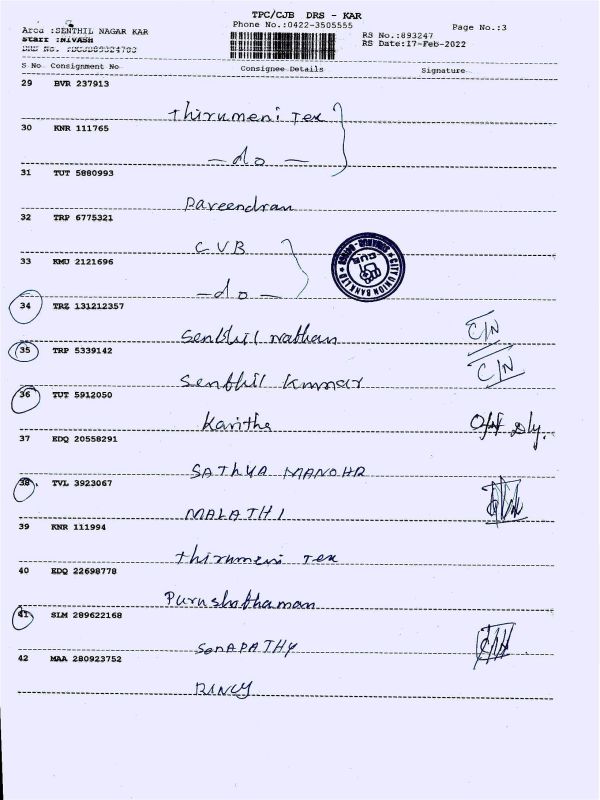 TPC/CJB DRS - KAR
Area :SENTHIL NAGAR KAR Phone No.:0422-3505555 Page No.:3
Staff :NIVASH RS No.:893247
DRS No. RS Date:17-Feb-2022
S No Consignment No Consignee Details Signature
29 BVR 237913
Thirumeni Tex
30 KNR 111765
- do -
31 TUT 5880993
Paveendran
32 TRP 6775321
CVB
33 KMU 2121696
- do -
CITY UNION BANK LTD
CUB
34 TRZ 131212357
Senthil Nathan C/N
35 TRP 5339142
Senthil Kumar C/N
36 TUT 5912050
Kavitha Dly.
37 EDQ 20558291
SATHYA MANOHR
38 TVL 3923067
MALATHI
39 KNR 111994
Thirumeni Tex
40 EDQ 22698778
Purushothaman
41 SLM 289622168
SenAPATHY
42 MAA 280923752
RINCY